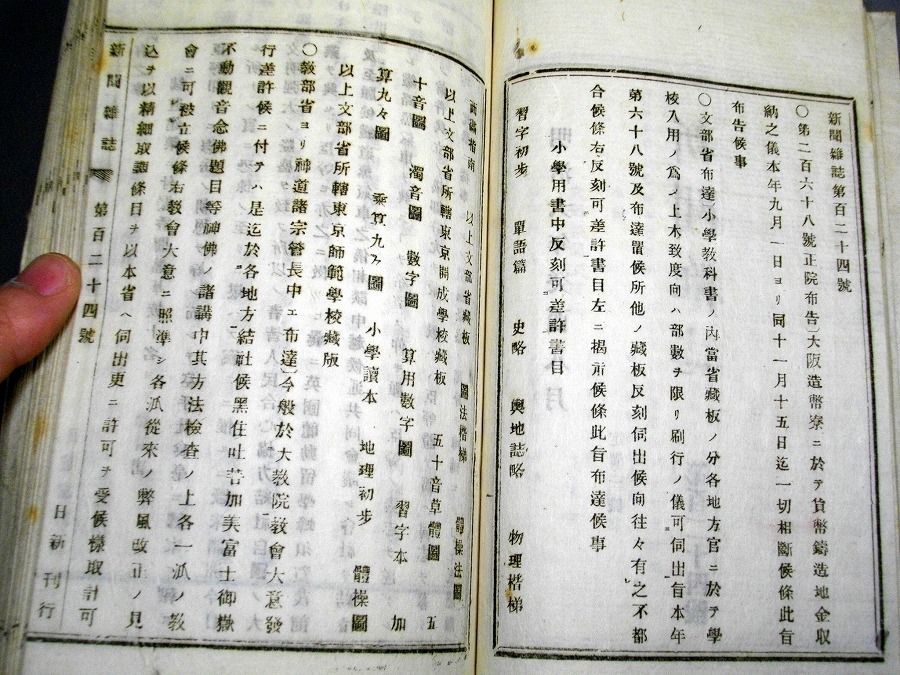 新聞雜誌第百二十四號
〇第二百六十八號正院布告〕大阪造幣寮ニ於テ貨幣鑄造地金取
納之儀本年九月一日ヨリ同十一月十五日迄一切相斷候條此旨
布告候事
〇文部省布達〕小學教科書ノ內當省藏板ノ分各地方官ニ於テ學
校入用ノ爲メ上木致度向ハ部數ヲ限リ刷行ノ儀可伺出旨本年
第六十八號及布達置候所他ノ藏板反刻伺出候向往々有之不都
合候條右反刻可差許書目左ニ揭示候條此旨布達候事
小學用書中反刻可差許書目
習字初步 單語篇 史略 輿地誌略 物理楷梯
以上文部省藏板 圖法楷梯 體操法圖
以上文部省所轄東京開成學校藏板 五十音草體圖 五
十音圖 濁音圖 數字圖 算用數字圖 習字本 加
算九々圖 乘算九々圖 小學讀本 地理初步 體操圖
以上文部省所轄東京師範學校藏版
〇敎部省ヨリ神道諸宗管長中エ布達〕今般於大敎院敎會大意發
行差許候ニ付テハ是迄於各地方結社候黑住吐菩加美富士御嶽
不動觀音念佛題目等神佛ノ諸講中其方法檢查ノ上各一派ノ敎
會ニ可被立候條右敎會大意ニ照準シ各派從來ノ弊風改正ノ見
込ヲ以精細取調條日ヲ以本省ヘ伺出更ニ許可ヲ受候樣取計可
新聞雜誌 第百二十四號 日新刊行